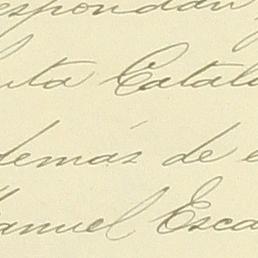 espondan
uta Catal
demás de e
Manuel Esca